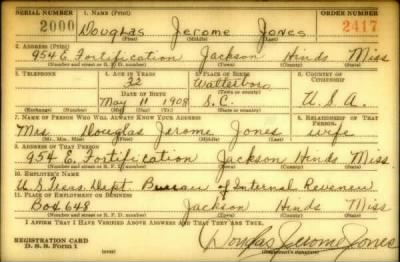 SERIAL NUMBER 1. NAME (Print) ORDER NUMBER
2000 Douglas Jerome Jones 2417
(First) (Middle) (Last)
2. ADDRESS (Print)
954 E. Fortification Jackson Hinds Miss
(Number and street or R. F. D. number) (Town) (County) (State)
3. TELEPHONE 4. AGE IN YEARS 5. PLACE OF BIRTH 6. COUNTRY OF CITIZENSHIP
32 Walterboro
DATE OF BIRTH (Town or county)
May 11 1908 S.C. U.S.A.
(Exchange) (Number) (Mo.) (Day) (Yr.) (State or country)
7. NAME OF PERSON WHO WILL ALWAYS KNOW YOUR ADDRESS 8. RELATIONSHIP OF THAT PERSON
Mrs. Douglas Jerome Jones wife
(Mr., Mrs., Miss) (First) (Middle) (Last)
9. ADDRESS OF THAT PERSON
954 E. Fortification Jackson Hinds Miss
(Number and street or R. F. D. number) (Town) (County) (State)
10. EMPLOYER'S NAME
U.S. Treas. Dept. Bureau of Internal Revenue
11. PLACE OF EMPLOYMENT OR BUSINESS
Box 648 Jackson Hinds Miss
(Number and street or R. F. D. number) (Town) (County) (State)
I AFFIRM THAT I HAVE VERIFIED ABOVE ANSWERS AND THAT THEY ARE TRUE.
REGISTRATION CARD
D. S. S. Form 1 Douglas Jerome Jones